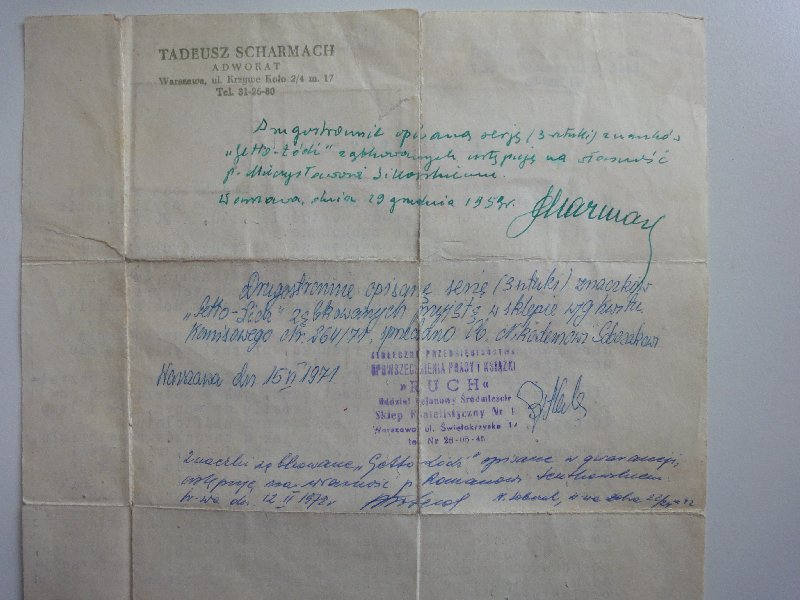 TADEUSZ SCHARMACH
ADWOKAT
Warszawa, ul. Krzywe Koło 2/4 m. 17
Tel. 31-26-80
Drugostronnie opisaną serję (3 sztuki) znaczków
„Getto-Łódź" ząbkowanych ustępuję na własność
p. Mieczysławowi
Warszawa, dnia 29 grudnia 1959r.
Drugostronnie opisane serię (3 sztuki) znaczków
„Getto-Łódź" ząbkowanych przyjętą w sklepie wg kwitu
Komisowego nr. 264/71, sprzedano Ob. Nikodemowi
Warszawa dn 16 VI 1971
STOŁECZNE PRZEDSIĘBIORSTWO
UPOWSZECHNIENIA PRASY I KSIĄŻKI
»RUCH«
Oddział Rejonowy Śródmieście
Sklep Filatelistyczny Nr 1
Warszawa, ul. Świętokrzyska
tel. Nr 26-05-46
Znaczki ząbkowane „Getto Łódź" opisane w gwarancji,
ustępuję na własność p. Romanowi
W-wa dn. 12 II 1972r